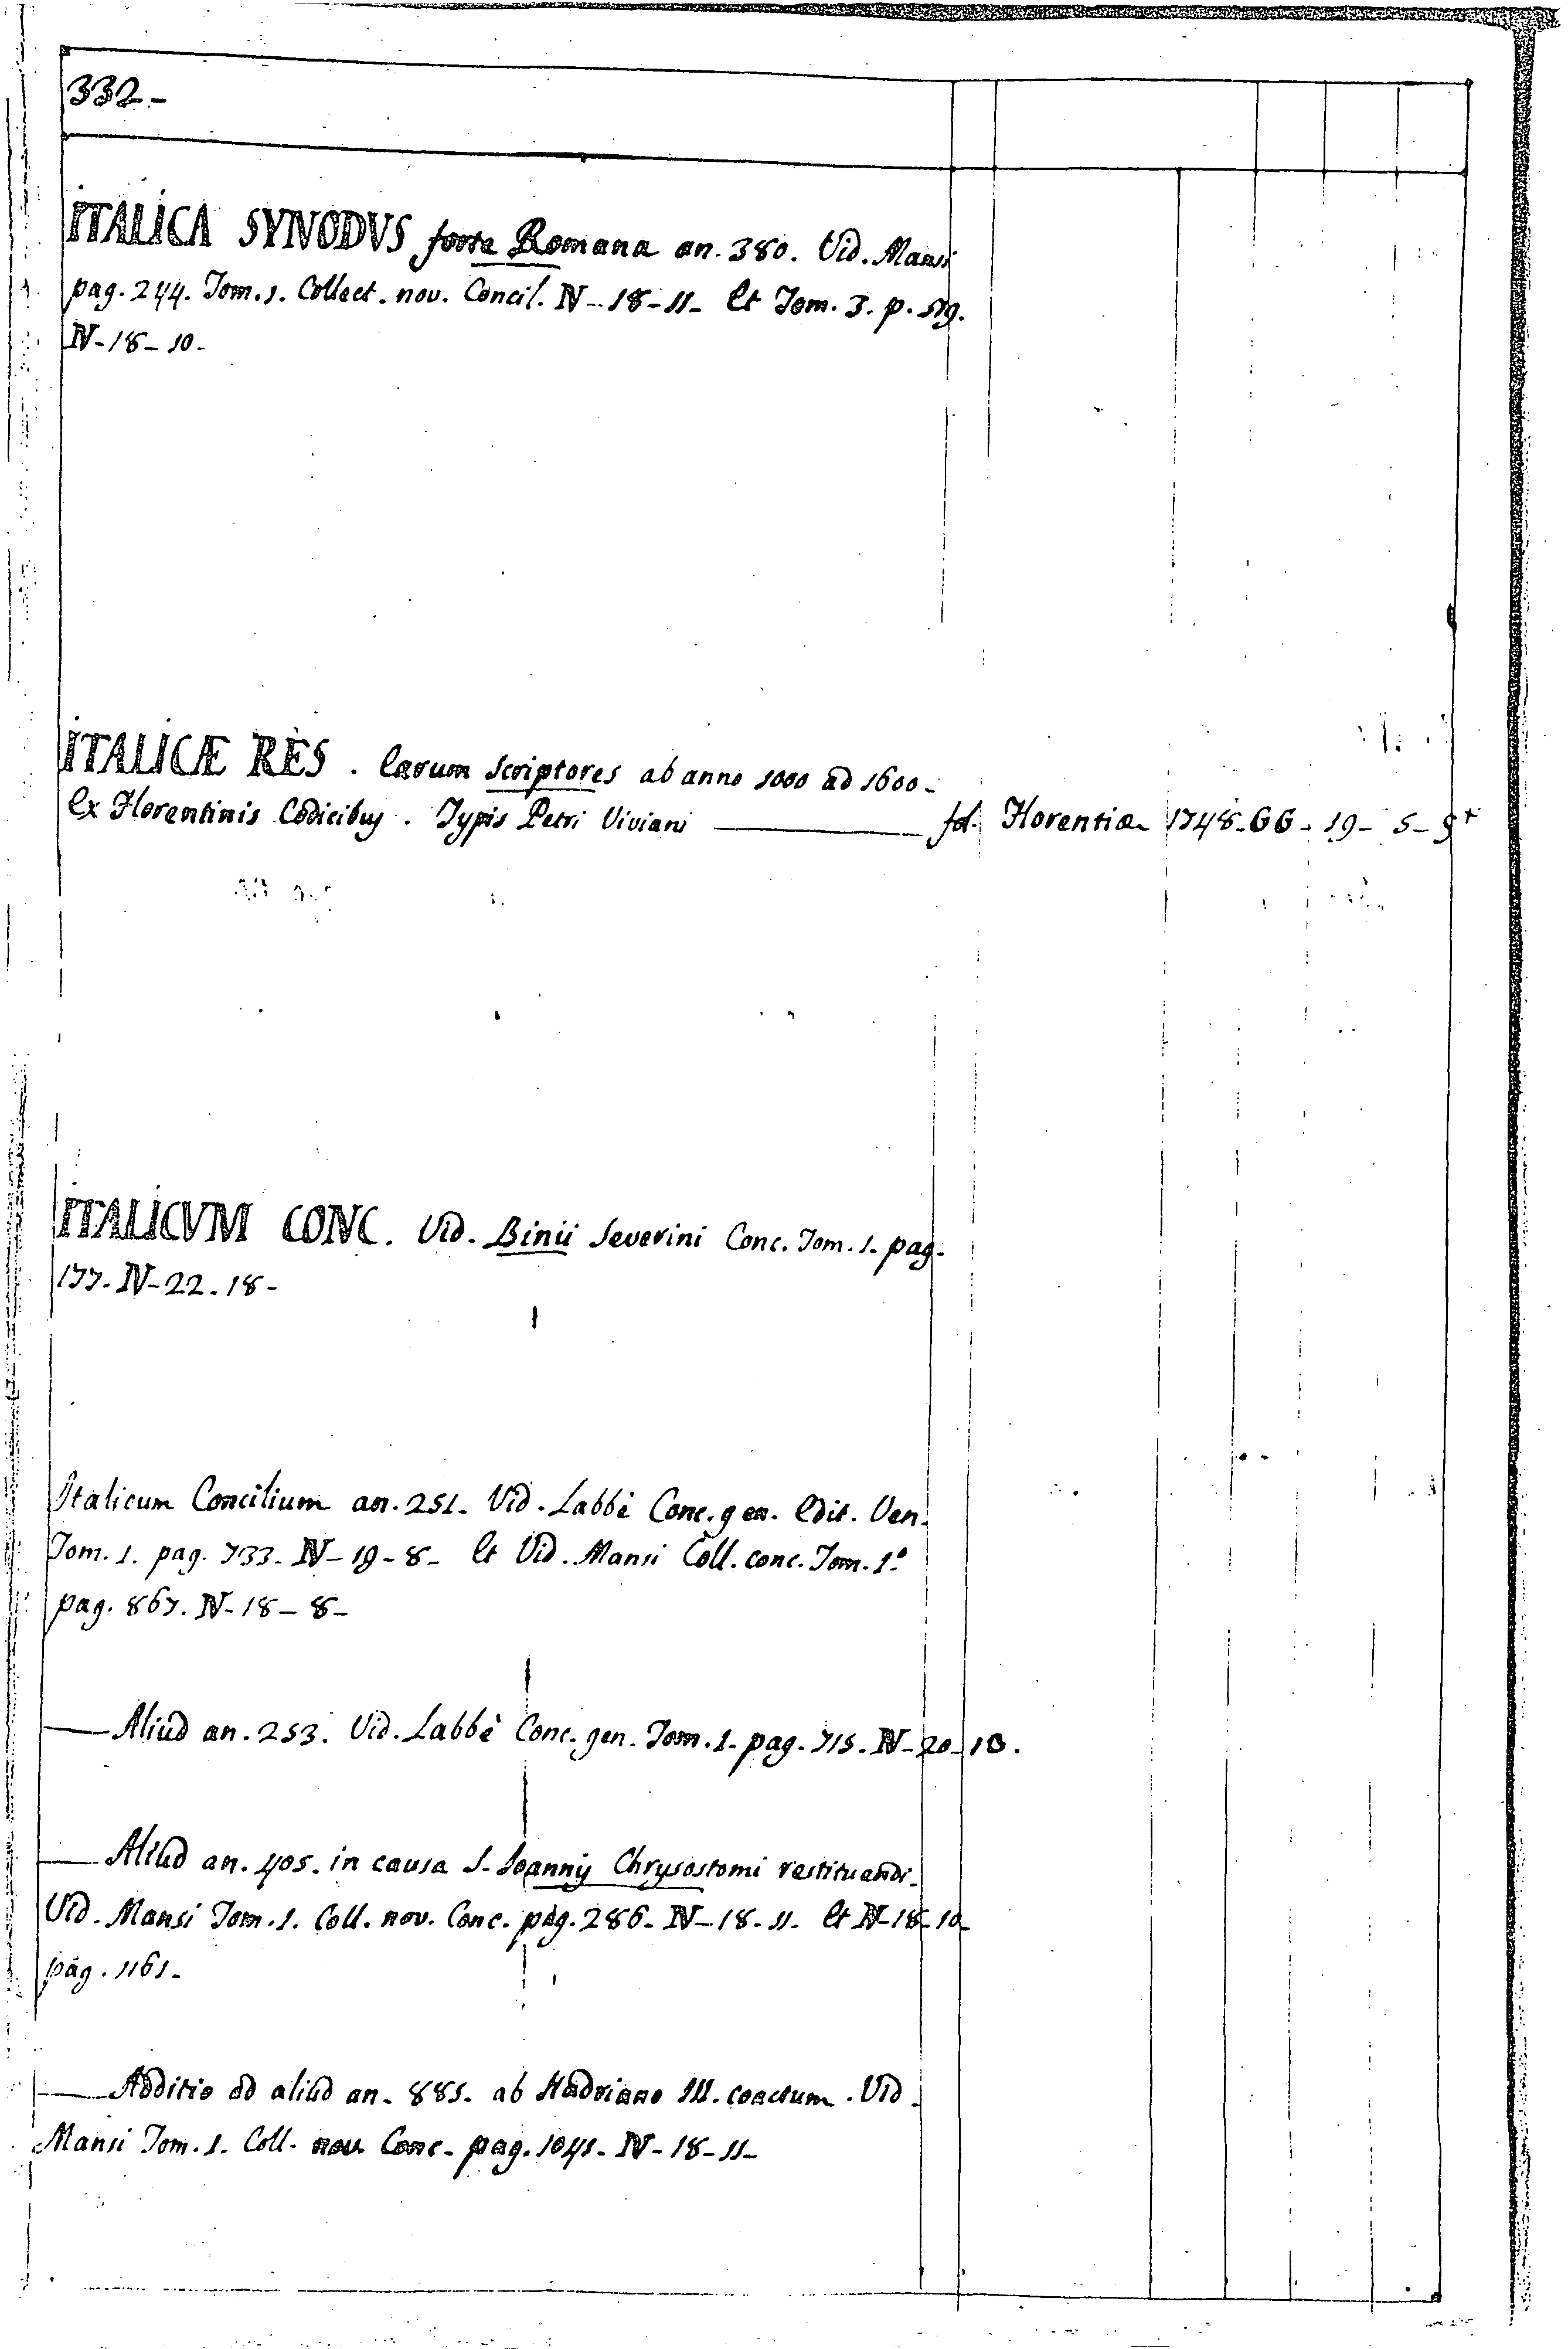 332-
ITALICA SYNODVS forte Romana an. 380. Vid. Mansi
pag. 244. Tom. 1. Collect. nov. Concil. IV-18-11- Et Tom. 3. p. 519.
IV-18-10-
ITALICÆ RES. Earum Scriptores ab anno 1000 ad 1600-
Ex Florentinis Codicibus. Typis Petri Viviani — fol. Florentiæ 1748-GG-19-5-9+
ITALICVM CONC. Vid. Binii Severini Conc. Tom. 1. pag.
177. IV-22.18-
Italicum Concilium an. 251. Vid. Labbè Conc. gen. Edit. Ven.
Tom. 1. pag. 733. IV-19-8- Et Vid. Mansi Coll. conc. Tom. 1.º
pag. 867. IV-18-8-
— Aliud an. 253. Vid. Labbè Conc. gen. Tom. 1. pag. 715. IV-20-10.
— Aliud an. 405. in causa S. Ioannis Chrysostomi restituendi.
Vid. Mansi Tom. 1. Coll. nov. Conc. pag. 286. IV-18-11. Et IV-18-10-
pag. 1161-
— Additio ad aliud an. 885. ab Hadriano III. coactum. Vid.
Mansi Tom. 1. Coll. nov. Conc. pag. 1041. IV-18-11-